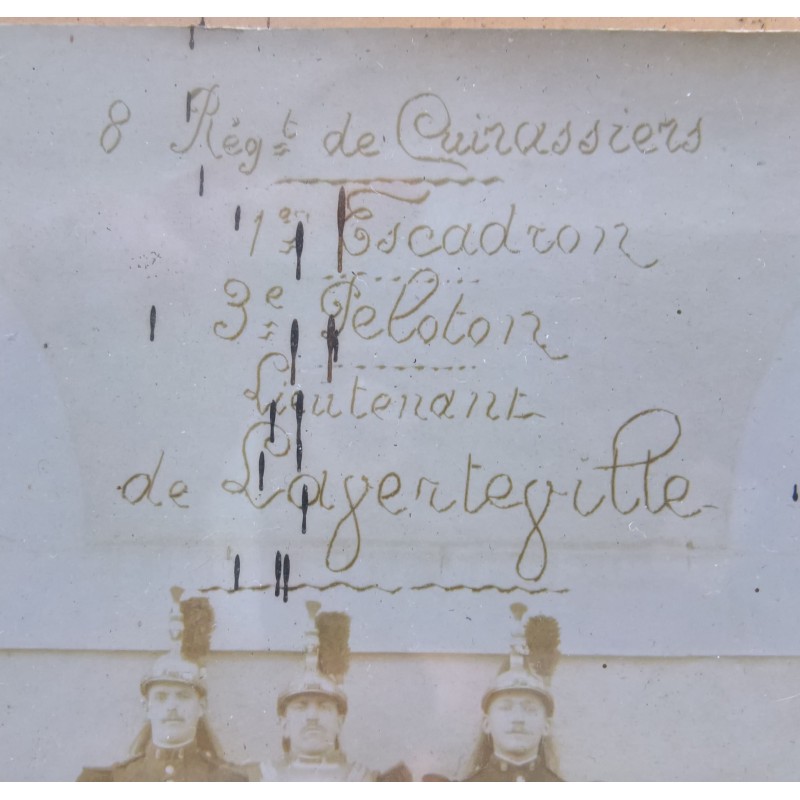 8 Régt de Cuirassiers
1er Escadron
3e Peloton
Lieutenant
de Lagerteville